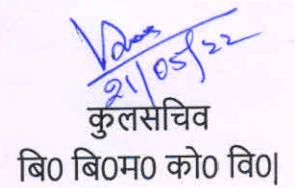 21/05/22
कुलसचिव
बि0 बि0म0 को0 वि0|